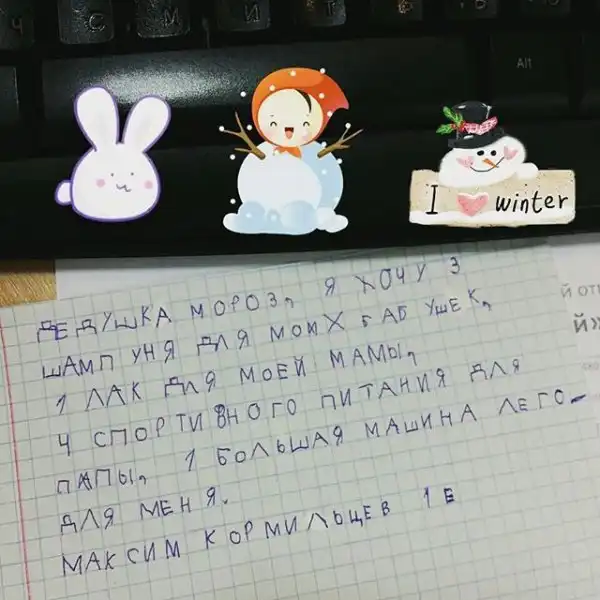 Ч С М И Т Ь
Alt
I winter
ДЕДУШКА МОРОЗ, Я ХОЧУ 3
ШАМПУНЯ ДЛЯ МОИХ БАБУШЕК,
1 ЛАК ДЛЯ МОЕЙ МАМЫ,
4 СПОРТИВНОГО ПИТАНИЯ ДЛЯ
ПАПЫ, 1 БОЛЬШАЯ МАШИНА ЛЕГО-
ДЛЯ МЕНЯ.
МАКСИМ КОРМИЛЬЦЕВ 1 Е
й»